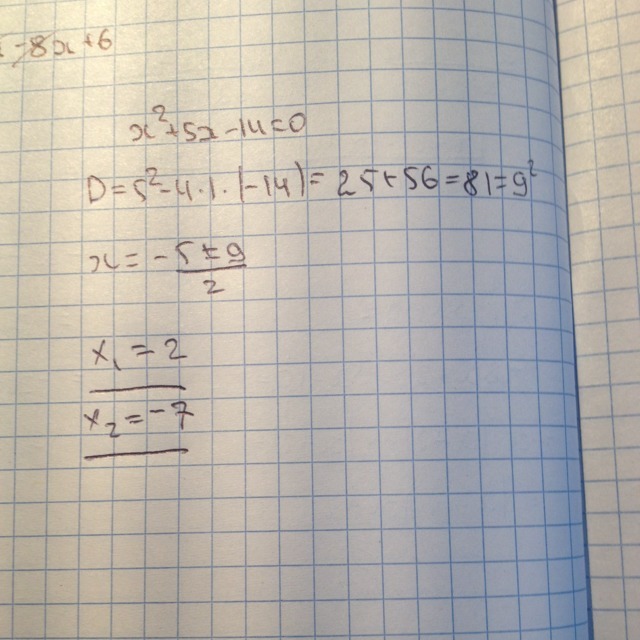 -8x+6
x²+5x-14=0
D=5²-4·1·(-14)=25+56=81=9²
x=-5±9/2
x₁=2
x₂=-7